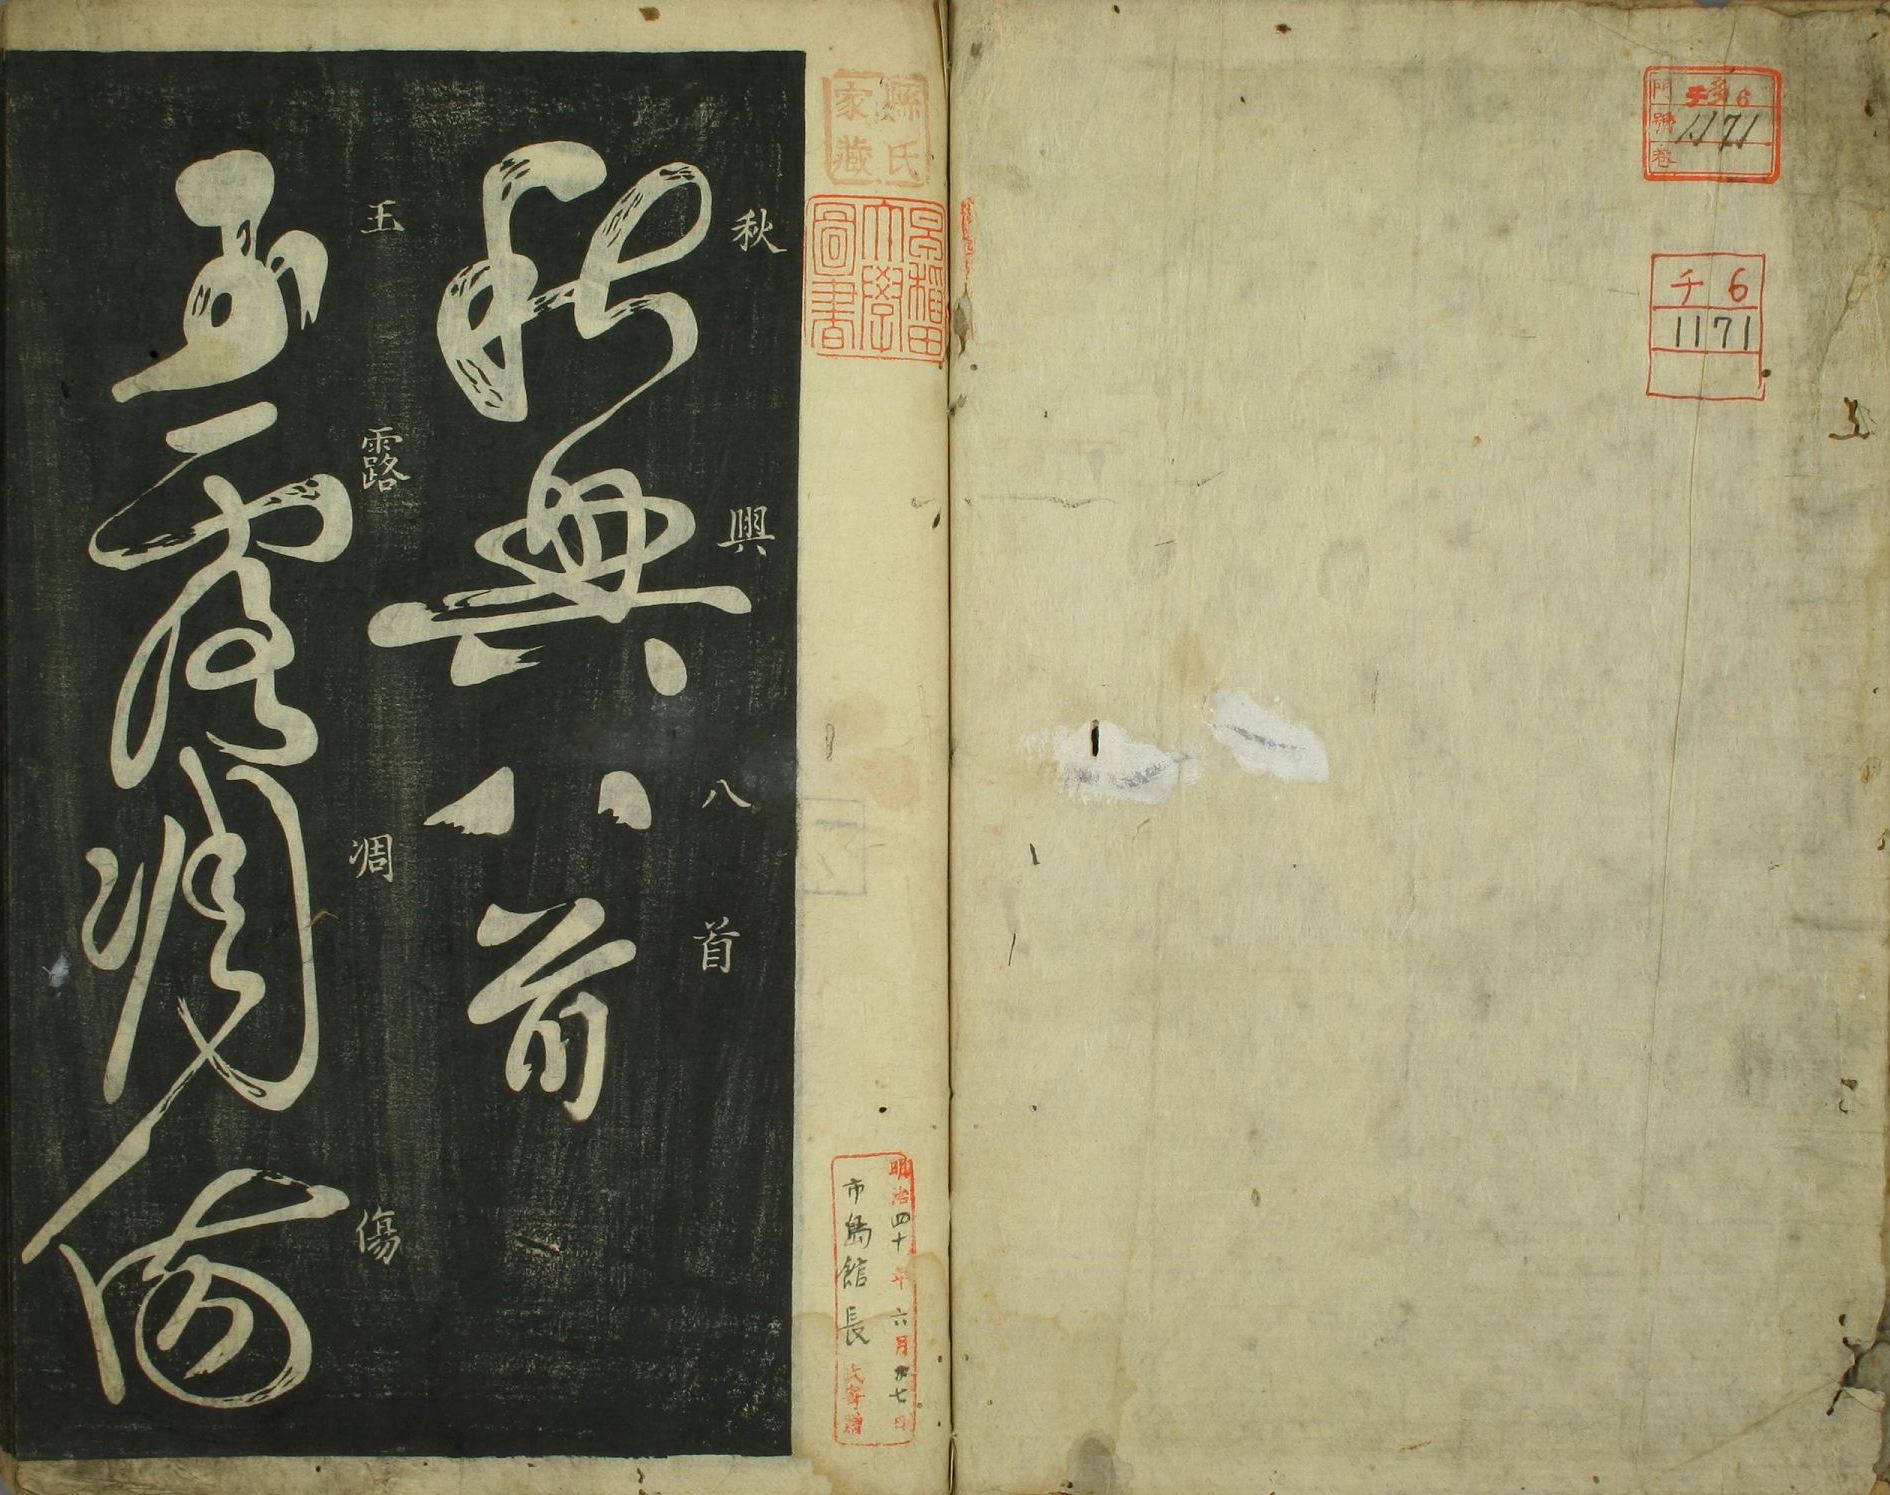 門 チ 6
號 1171
卷
チ 6
1171
縣氏
家藏
早稻田
大學
圖書
明治四十年六月廿七日
市島館長氏寄贈
秋興八首
秋興八首
玉露凋傷
玉露凋傷